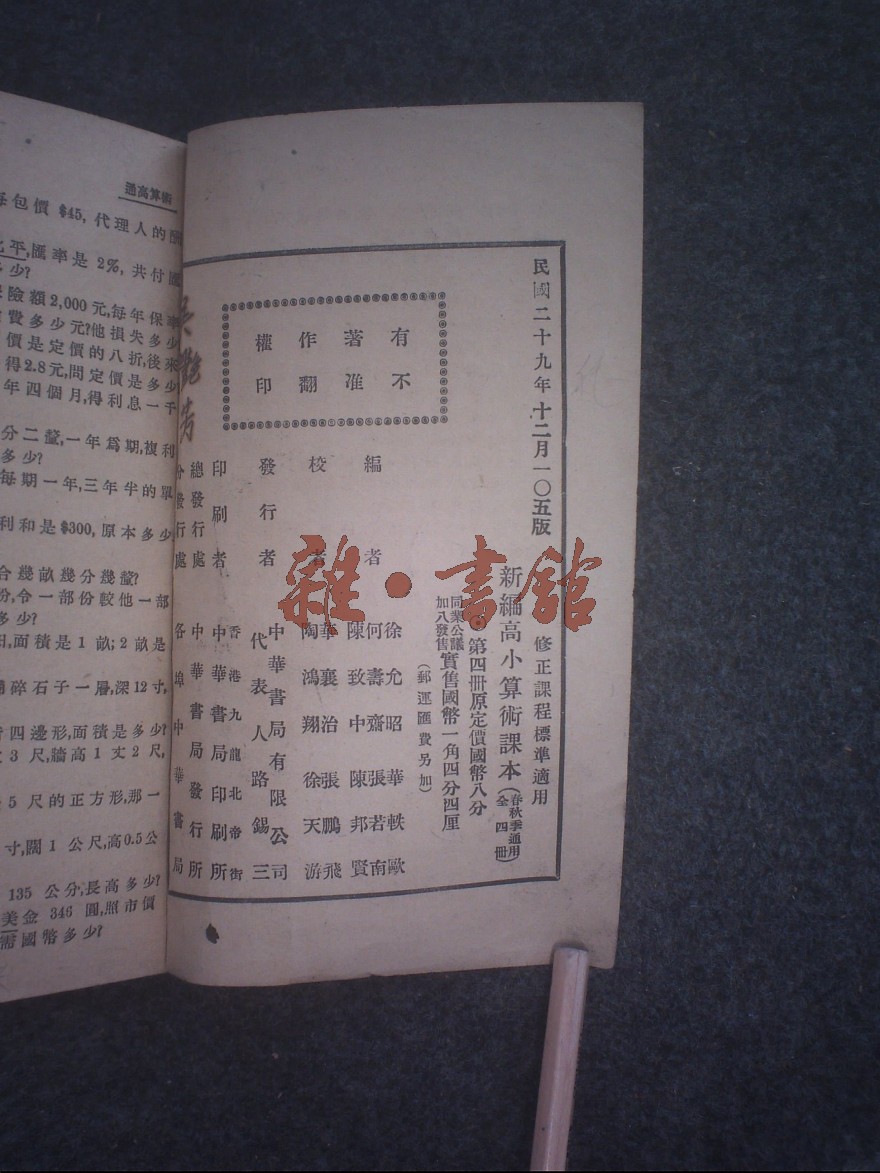 民國二十九年十二月一〇五版
修正課程標準適用
新編高小算術課本(春秋季通用全四冊)
第四冊原定價國幣八分
同業公議加八發售實售國幣一角四分四厘
(郵運匯費另加)
有著作權
不准翻印
編者
徐允昭 華軼歐
何壽齋 張若南
陳致中 陳邦賢
校者
華襄治 張鵬飛
陶鴻翔 徐天游
發行者
中華書局有限公司
代表人路錫三
印刷者
香港九龍北帝街
中華書局印刷所
總發行處
中華書局發行所
分發行處
各埠中華書局
雜·書館
過高算術
每包價 $45, 代理人的
北平,匯率是 2%, 共付
多少?
險額2,000元,每年保
費多少元?他損失多少
價是定價的八折,後來
得2.8元,問定價是多少
年四個月,得利息一千
分二釐,一年爲期,複利
多少?
每期一年,三年半的單
利和是$300, 原本多少
合幾畝幾分幾釐?
份,令一部份較他一部
多少?
田,面積是 1 畝; 2 畝是
碎石子一層,深12寸,
四邊形,面積是多少?
3 尺,牆高 1 丈 2 尺,
5 尺的正方形,那一
寸,闊 1 公尺,高0.5公
135 公分,長高多少?
美金 346 圓,照市價
需國幣多少?